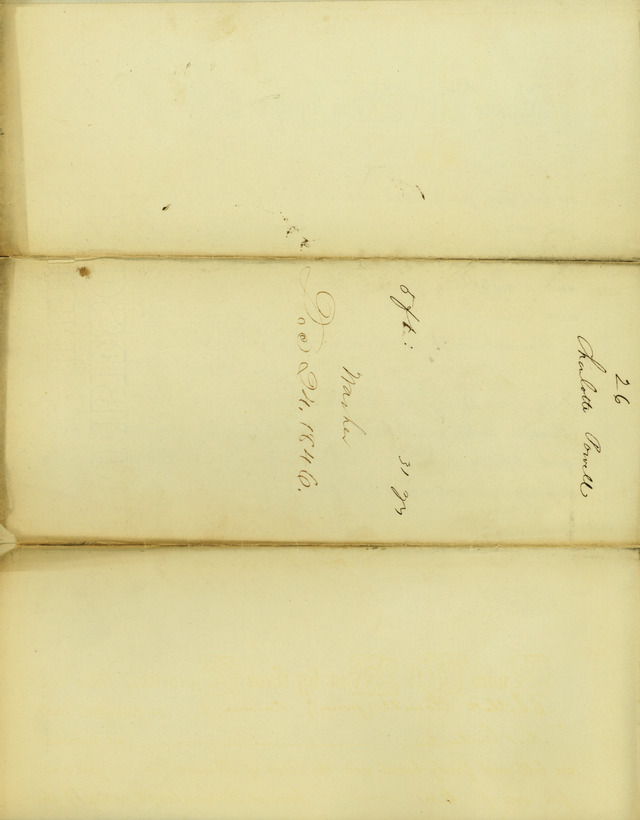 26
Charlotte Powell
5 ft: 31 yrs
Washer
Dec 24, 1846.